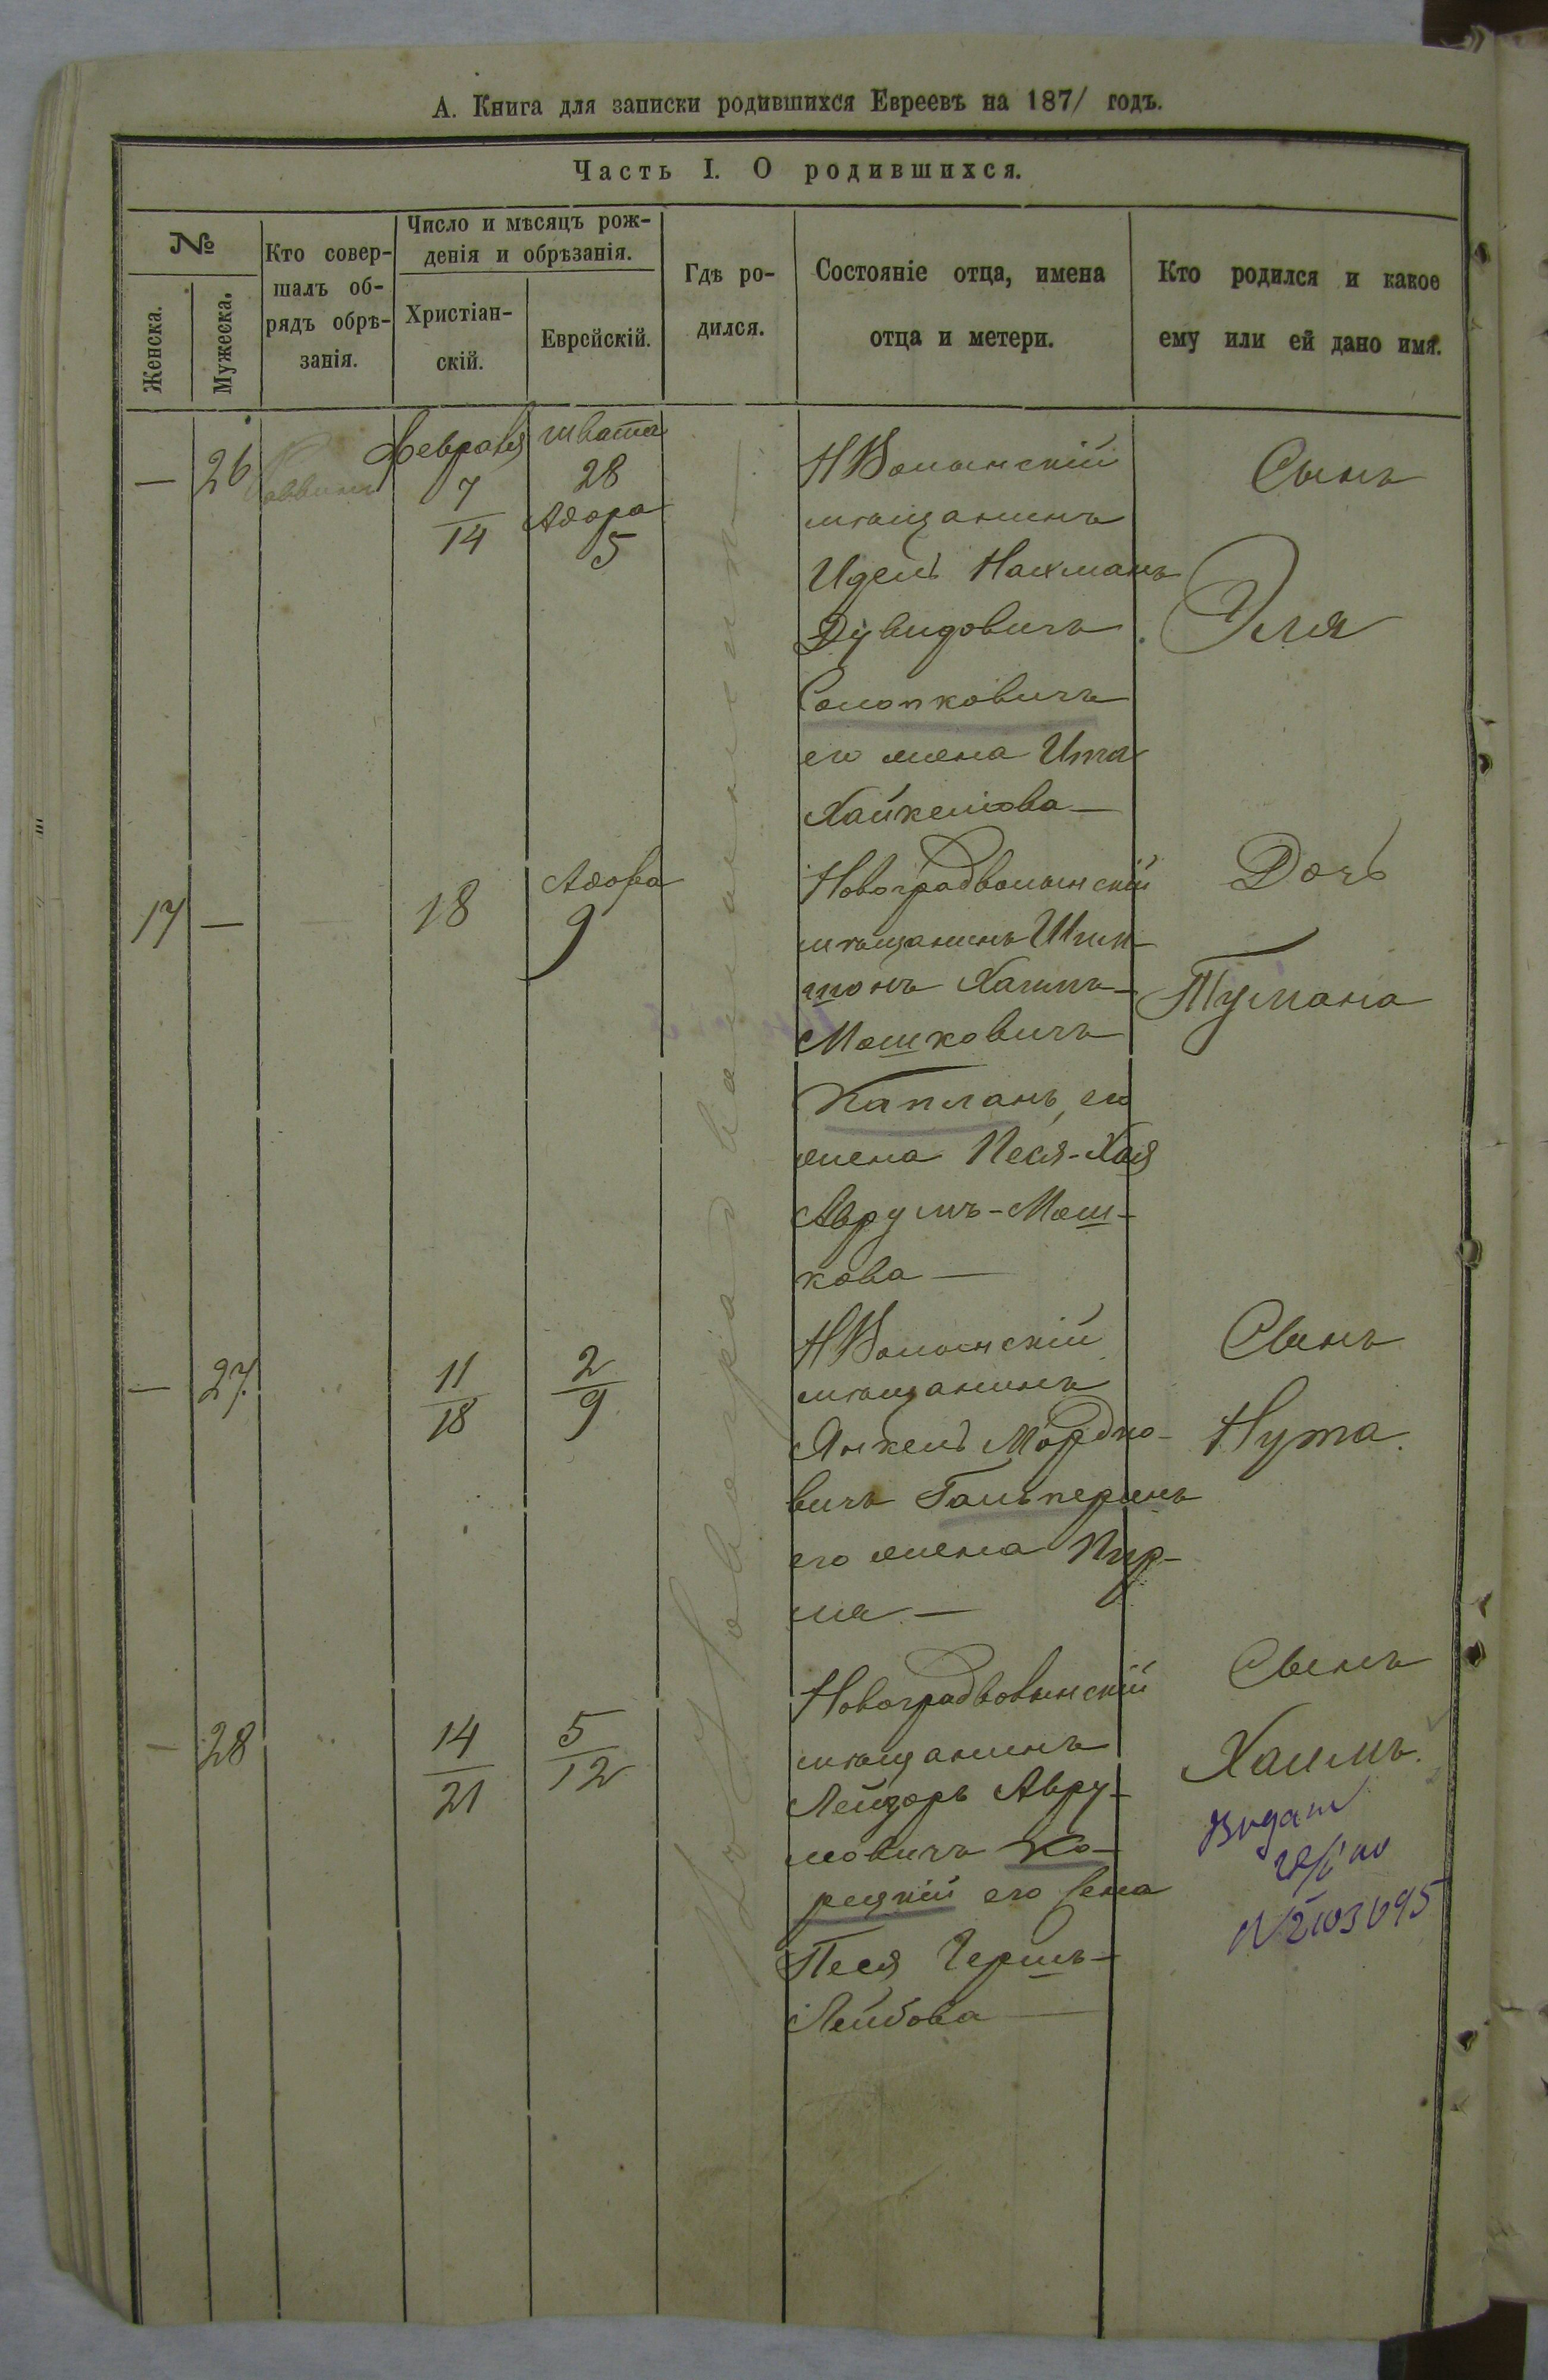 А. Книга для записки родившихся Евреевъ на 187/ годъ.
Часть I. О родившихся.
№
Женска.
Мужеска.
Кто совер-
шалъ об-
рядъ обрѣ-
занія.
Число и мѣсяцъ рож-
денія и обрѣзанія.
Христіан-
скій.
Еврейскій.
Гдѣ ро-
дился.
Состояніе отца, имена
отца и метери.
Кто родился и какое
ему или ей дано имя.
— 26 Раввинъ
Февраля
7
14
швата
28
Адара
5
НВолынскій
мѣщанинъ
Идель Нахманъ
Дувидовичъ
его жена Ита
Хайкелова —
Сынъ
Эля
17 —
18
Адара
9
Новоградволынскій
мѣщанинъ Шим-
шонъ Хаимъ-
Мошковичъ
Капланъ, его
жена Песя-Хая
Аврумъ-Мош-
кова —
Дочь
Тумана
— 27.
11
18
2
9
НВолынскій
мѣщанинъ
Янкель Мордко-
вичъ Гальперинъ
его жена Пир-
ля —
Сынъ
Нута.
— 28
14
21
5
12
Новоградволынскій
мѣщанинъ
Лейзоръ Авру-
мовичъ Ко-
рецкій его жена
Песя Гершъ-
Лейбова —
Сынъ
Хаимъ.
Новоградволынскъ